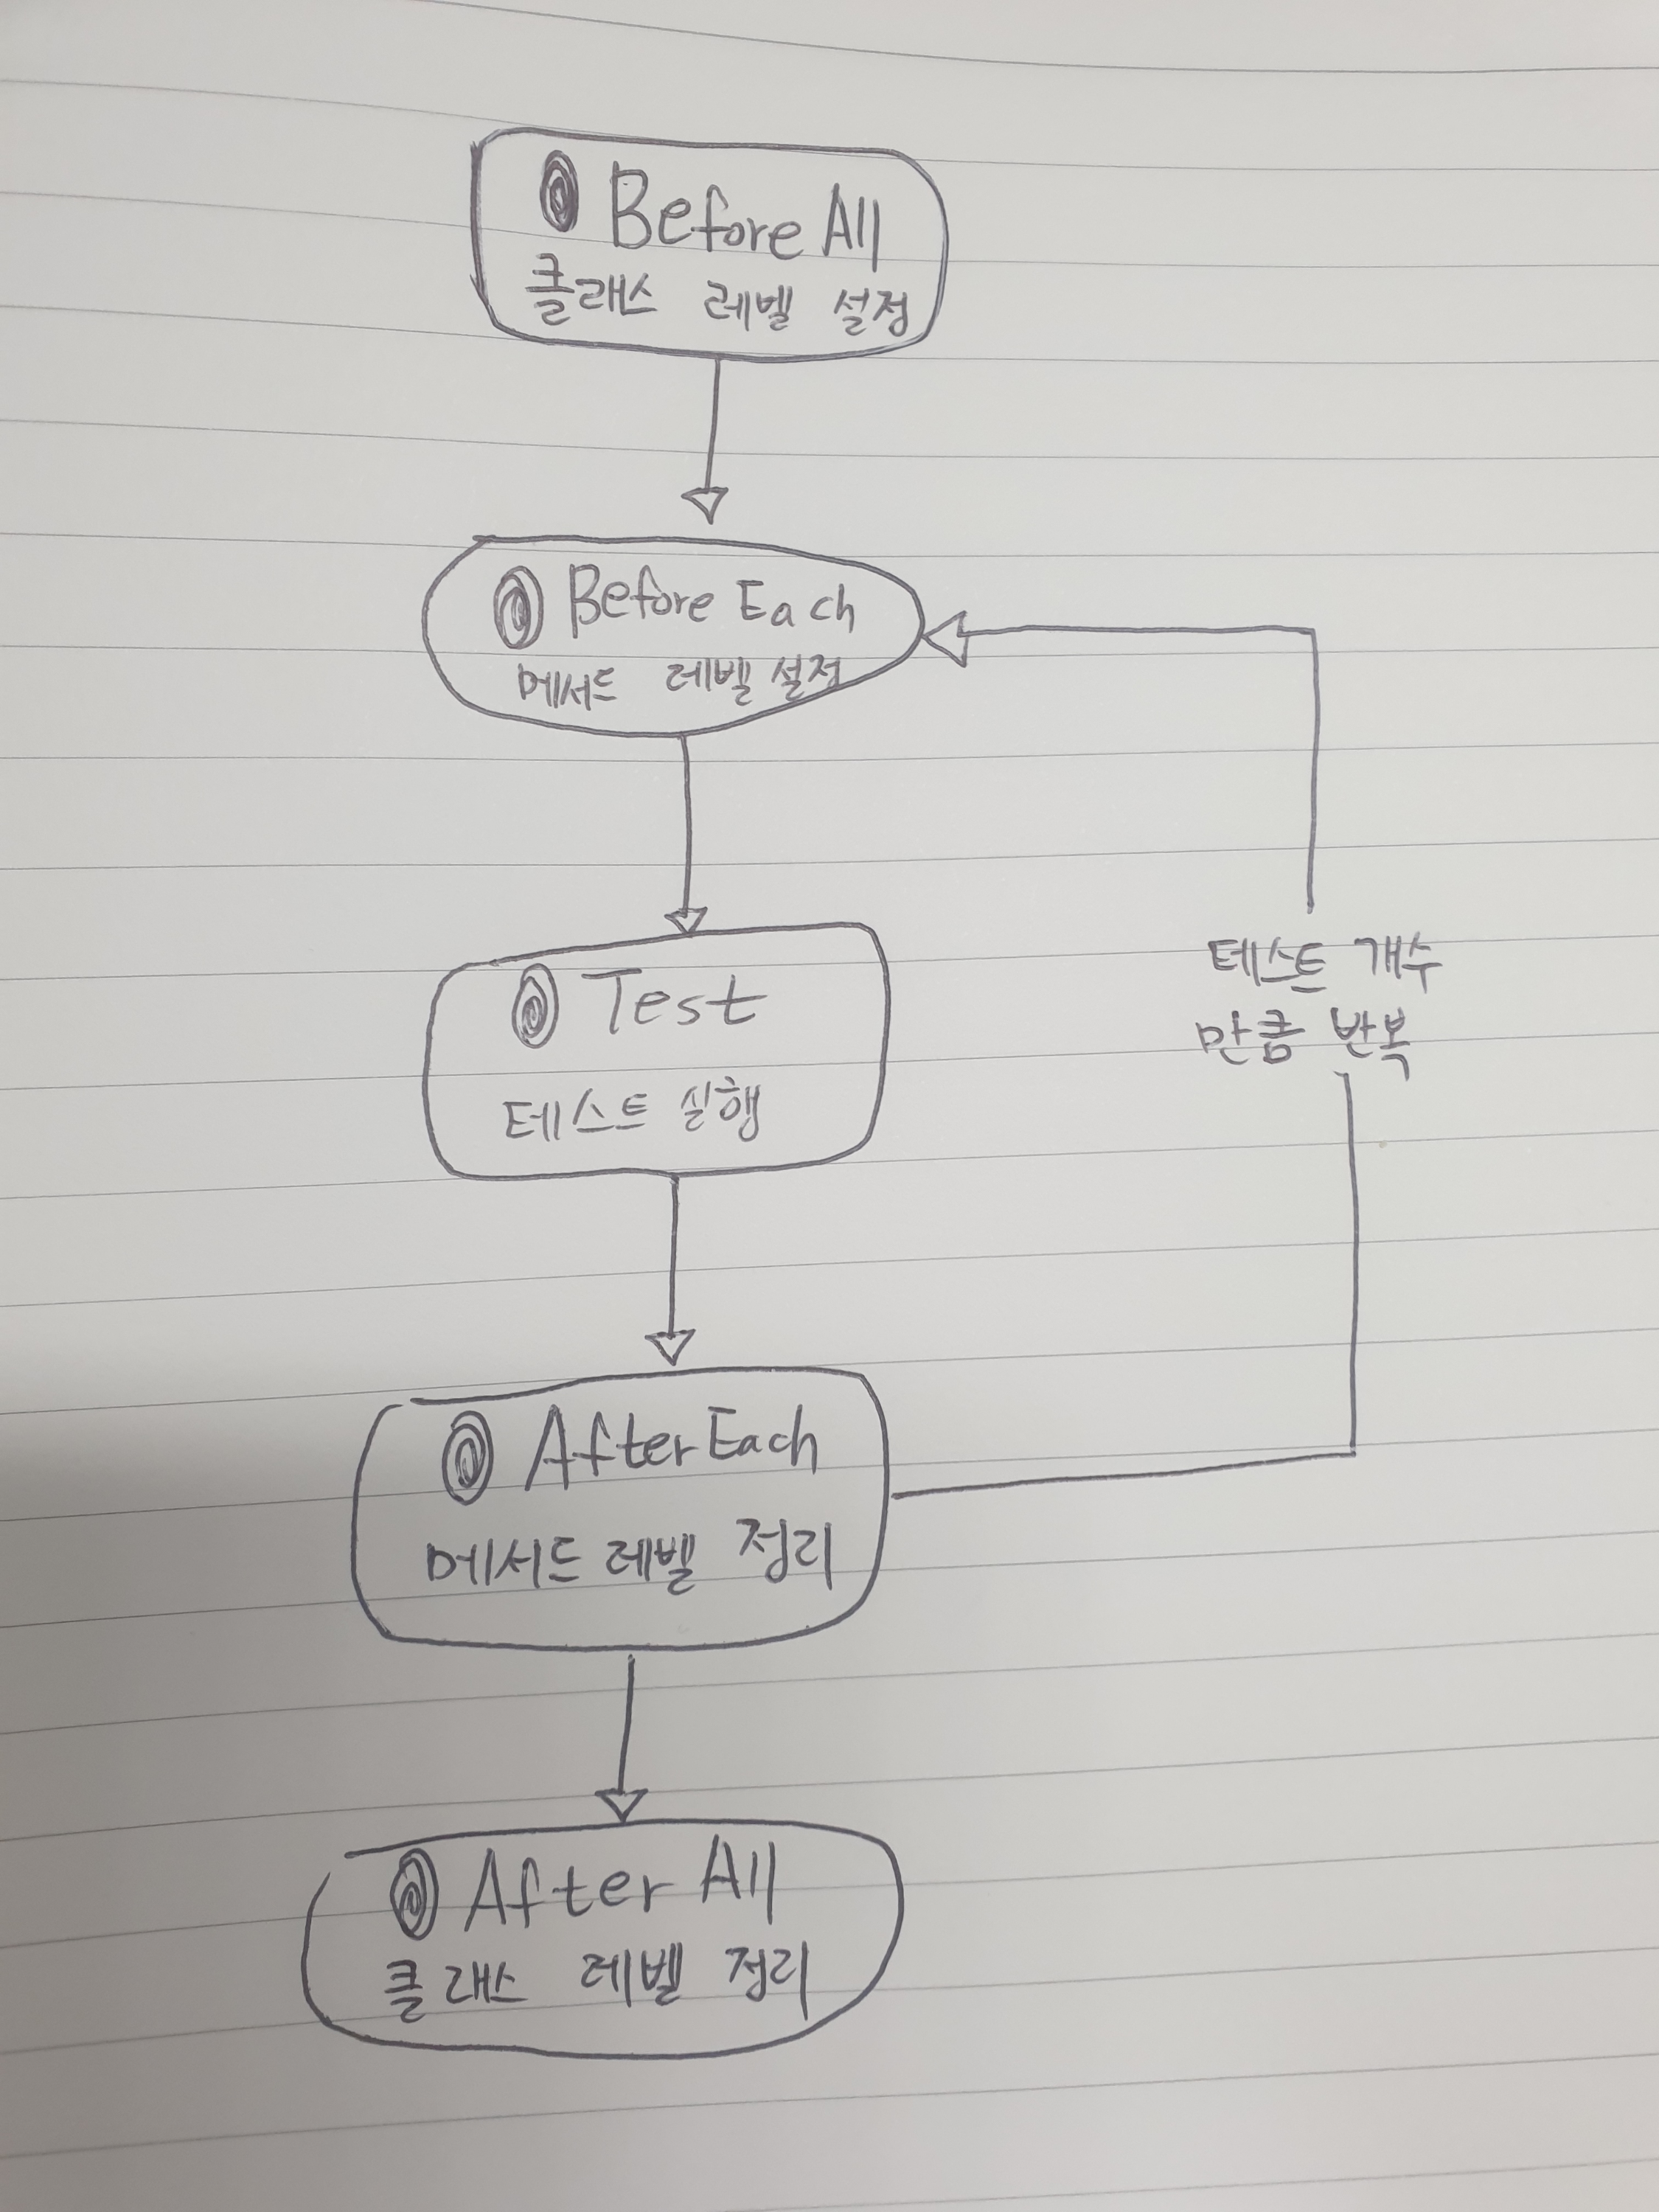 @ Before All
클래스 레벨 설정
@ Before Each
메서드 레벨 설정
@ Test
테스트 실행
테스트 개수
만큼 반복
@ After Each
메서드 레벨 정리
@ After All
클래스 레벨 정리